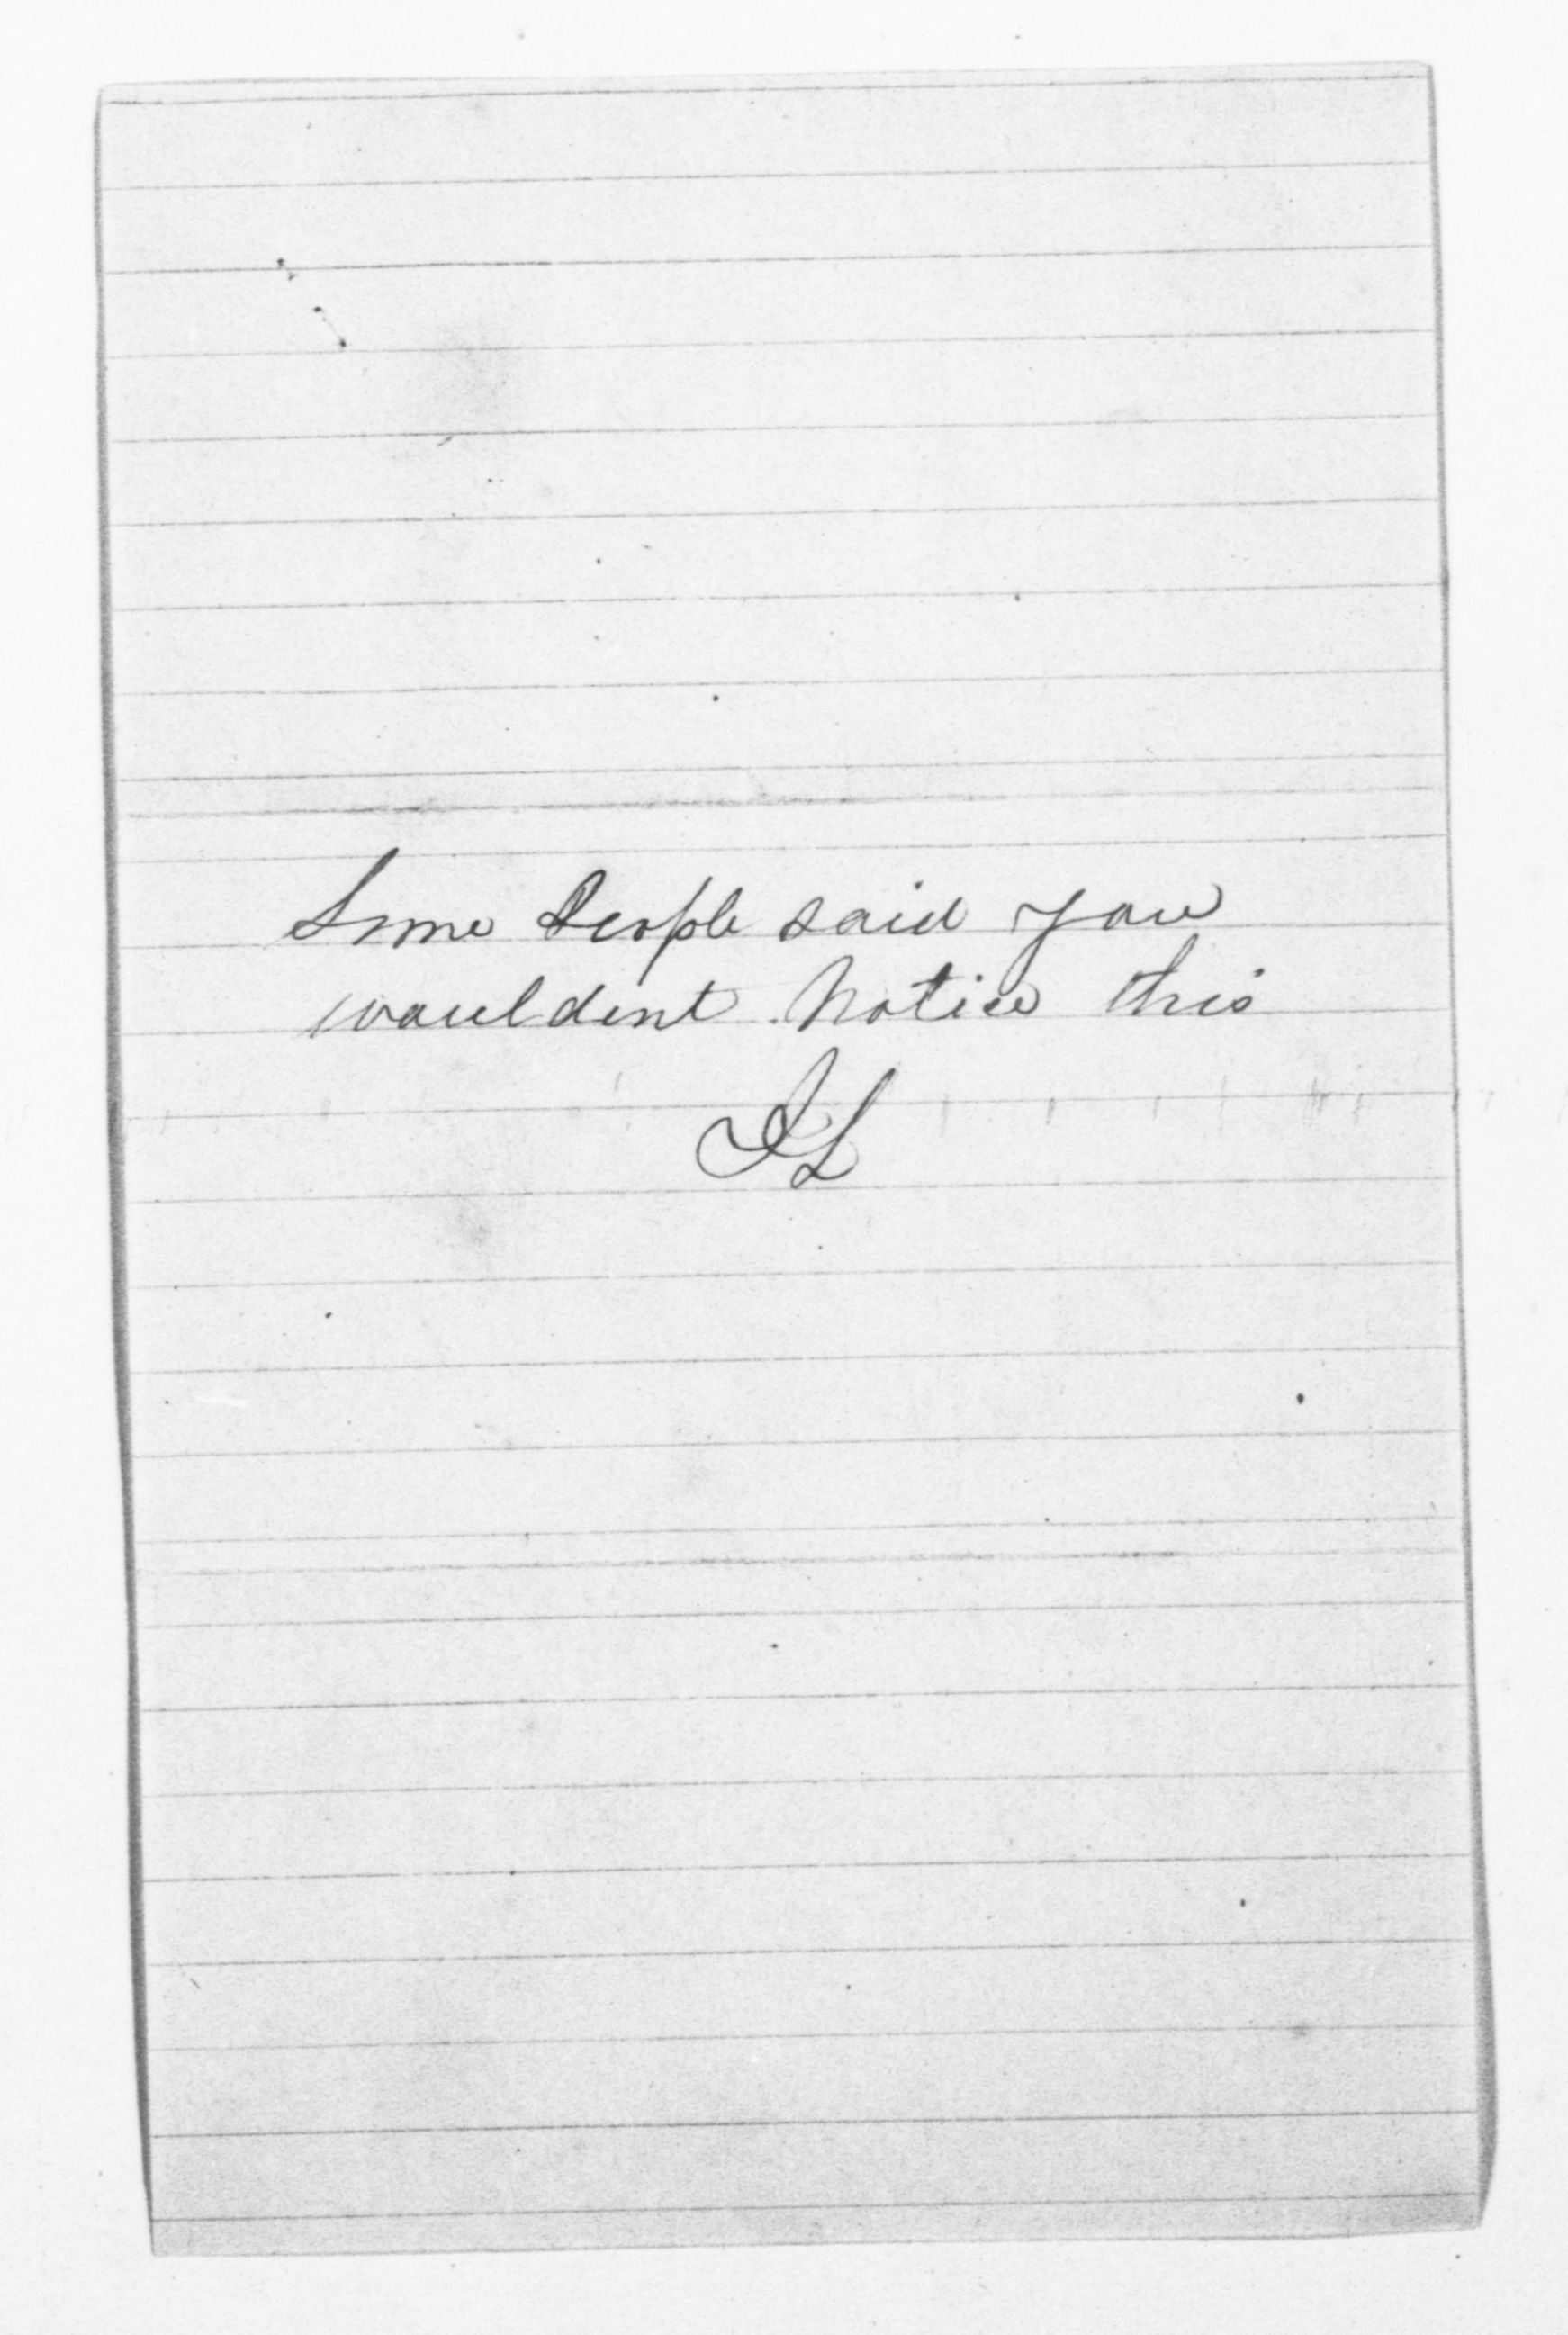 Some People said you
wouldent Notice this
IL